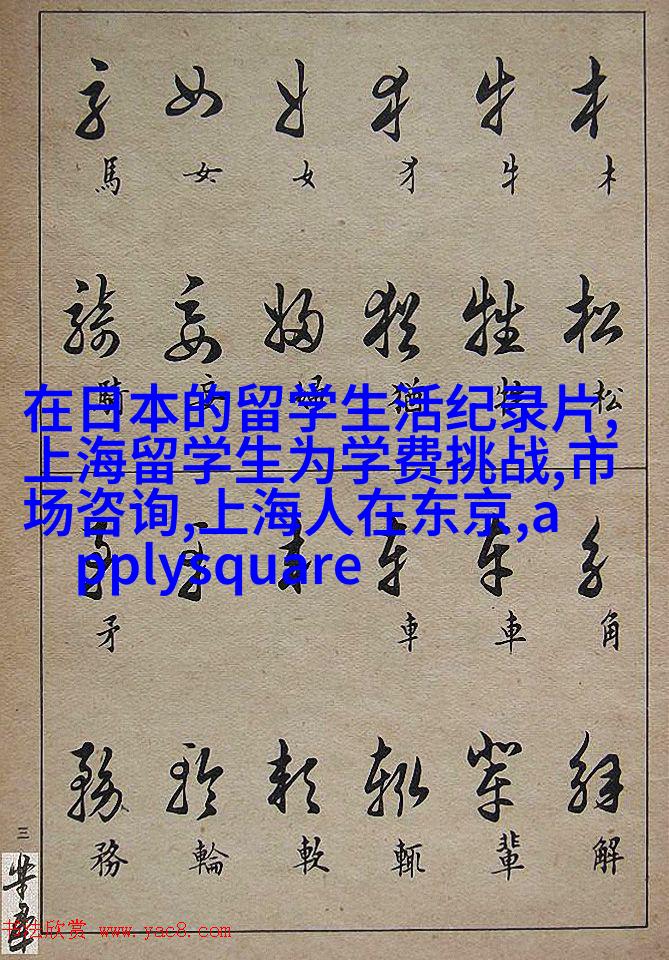 在日本的留学生活纪录片,
上海留学生为学费挑战,市
场咨询,上海人在东京,a
pplysquare
木 牛 犭 女 女 馬
松 牲 猶 婦 妄 騎
角 車 車 矛
解 輩 輒 軟 輪 務
三
书法欣赏 www.yac8.com